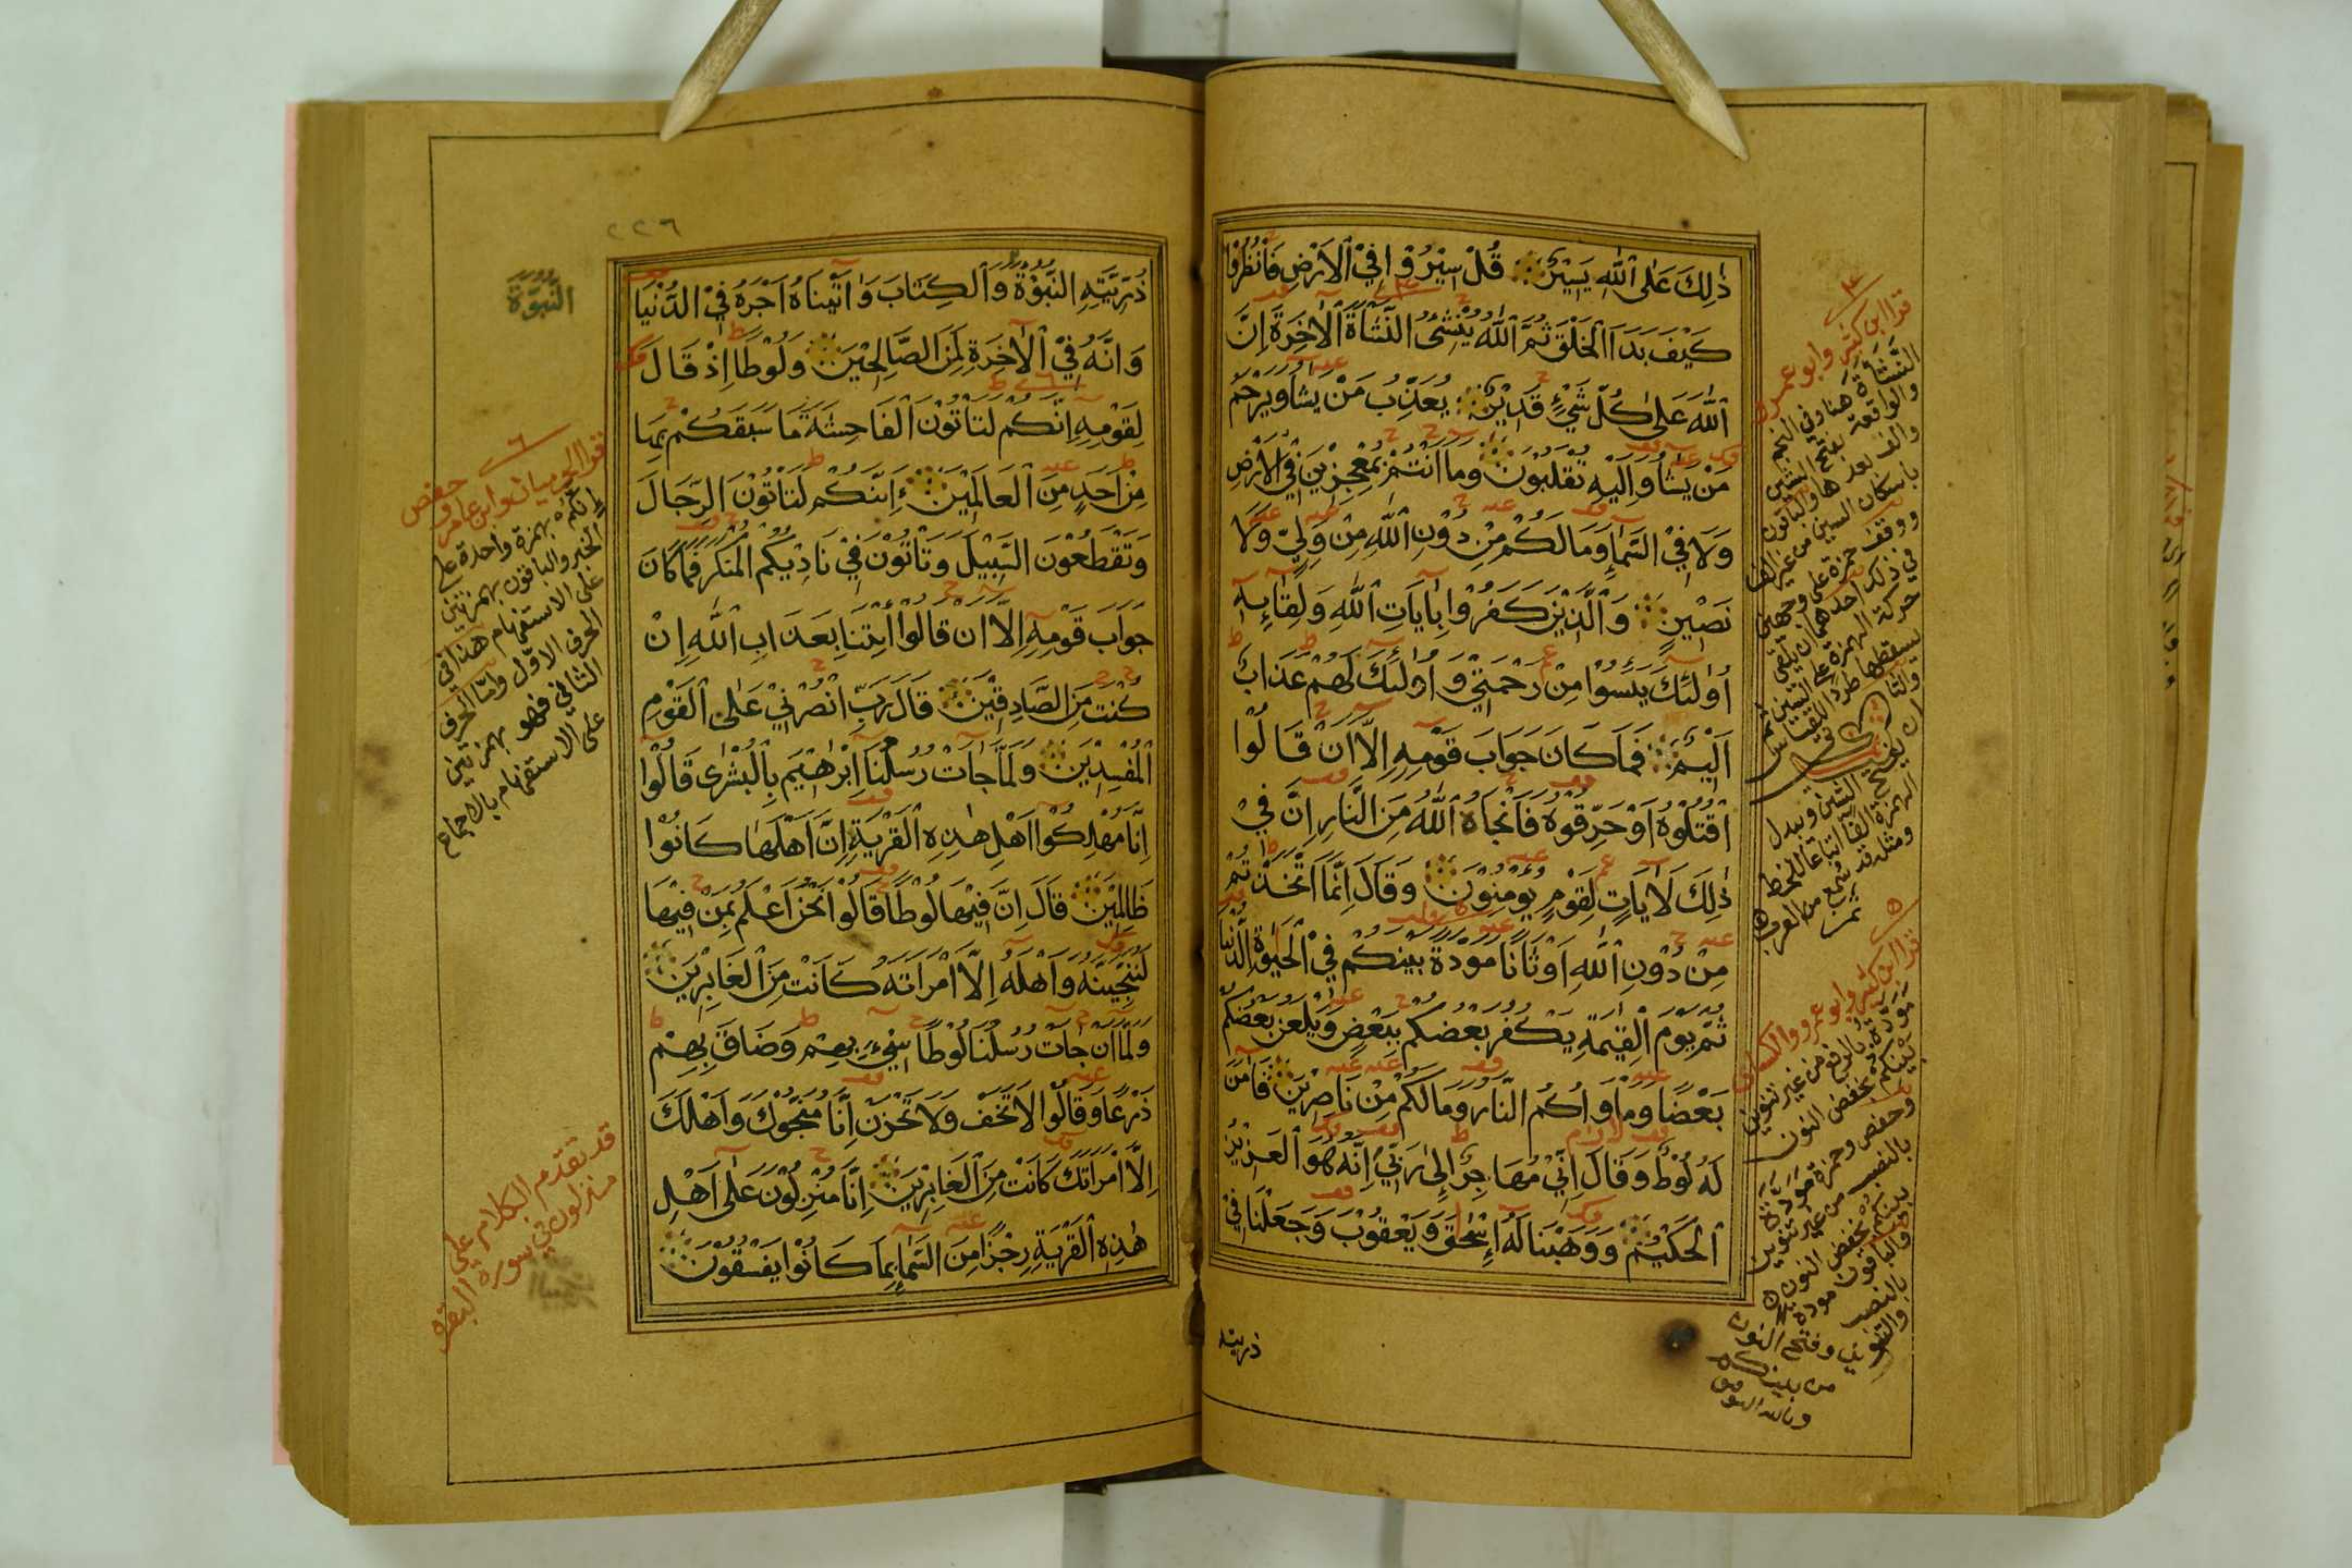 ذٰلِكَ عَلَى اللّٰهِ يَسِيْرٌ قُلْ سِيْرُوْا فِي الْاَرْضِ فَانْظُرُوْا
كَيْفَ بَدَاَ الْخَلْقَ ثُمَّ اللّٰهُ يُنْشِئُ النَّشْاَةَ الْاٰخِرَةَ اِنَّ
اللّٰهَ عَلٰى كُلِّ شَيْءٍ قَدِيْرٌ يُعَذِّبُ مَنْ يَشَاءُ وَيَرْحَمُ
مَنْ يَشَاءُ وَاِلَيْهِ تُقْلَبُوْنَ وَمَا اَنْتُمْ بِمُعْجِزِيْنَ فِي الْاَرْضِ
وَلَا فِي السَّمَاءِ وَمَا لَكُمْ مِنْ دُوْنِ اللّٰهِ مِنْ وَلِيٍّ وَلَا
نَصِيْرٍ وَالَّذِيْنَ كَفَرُوْا بِاٰيَاتِ اللّٰهِ وَلِقَائِهِ
اُولٰئِكَ يَئِسُوْا مِنْ رَحْمَتِيْ وَاُولٰئِكَ لَهُمْ عَذَابٌ
اَلِيْمٌ فَمَا كَانَ جَوَابَ قَوْمِهِ اِلَّا اَنْ قَالُوا
اقْتُلُوْهُ اَوْ حَرِّقُوْهُ فَاَنْجَاهُ اللّٰهُ مِنَ النَّارِ اِنَّ فِيْ
ذٰلِكَ لَاٰيَاتٍ لِقَوْمٍ يُؤْمِنُوْنَ وَقَالَ اِنَّمَا اتَّخَذْتُمْ
مِنْ دُوْنِ اللّٰهِ اَوْثَانًا مَوَدَّةَ بَيْنِكُمْ فِي الْحَيٰوةِ الدُّنْيَا
ثُمَّ يَوْمَ الْقِيٰمَةِ يَكْفُرُ بَعْضُكُمْ بِبَعْضٍ وَيَلْعَنُ بَعْضُكُمْ
بَعْضًا وَمَاْوٰكُمُ النَّارُ وَمَا لَكُمْ مِنْ نَاصِرِيْنَ فَاٰمَنَ
لَهُ لُوْطٌ وَقَالَ اِنِّيْ مُهَاجِرٌ اِلٰى رَبِّيْ اِنَّهُ هُوَ الْعَزِيْزُ
الْحَكِيْمُ وَوَهَبْنَا لَهُ اِسْحٰقَ وَيَعْقُوْبَ وَجَعَلْنَا فِيْ
ذريته
قرا ابن كثير وابو عمرو
النَّشَاۤءَةَ هنا وفي النجم
والواقعة بفتح الشين
والف بعدها والباقون
باسكان الشين من غير الف
ووقف حمزة على وجهين
في ذلك احدهما ان يلقي
حركة الهمزة على الشين ثم
يسقطها طردا للقياس
والثاني
ان يفتح الشين ويبدل
الهمزة الفا اتباعا للخط
ومثله قد سمع من العرب
قرا ابن كثير وابو عمرو والكسائي
مودة بالرفع من غير تنوين
بينكم بخفض النون
وحفص وحمزة مودة
بالنصب من غير تنوين
بينكم بخفض النون
والباقون مودة
بالنصب
والتنوين وفتح النون
من بينكم
وبالله التوفيق
٢٢٦
النُّبُوَّةَ
ذُرِّيَّتِهِ النُّبُوَّةَ وَالْكِتَابَ وَاٰتَيْنَاهُ اَجْرَهُ فِي الدُّنْيَا
وَاِنَّهُ فِي الْاٰخِرَةِ لَمِنَ الصَّالِحِيْنَ وَلُوْطًا اِذْ قَالَ
لِقَوْمِهِ اِنَّكُمْ لَتَاْتُوْنَ الْفَاحِشَةَ مَا سَبَقَكُمْ بِهَا
مِنْ اَحَدٍ مِنَ الْعَالَمِيْنَ ءَاِنَّكُمْ لَتَاْتُوْنَ الرِّجَالَ
وَتَقْطَعُوْنَ السَّبِيْلَ وَتَاْتُوْنَ فِيْ نَادِيْكُمُ الْمُنْكَرَ فَمَا كَانَ
جَوَابَ قَوْمِهِ اِلَّا اَنْ قَالُوا ائْتِنَا بِعَذَابِ اللّٰهِ اِنْ
كُنْتَ مِنَ الصَّادِقِيْنَ قَالَ رَبِّ انْصُرْنِيْ عَلَى الْقَوْمِ
الْمُفْسِدِيْنَ وَلَمَّا جَاءَتْ رُسُلُنَا اِبْرٰهِيْمَ بِالْبُشْرٰى قَالُوْا
اِنَّا مُهْلِكُوْا اَهْلِ هٰذِهِ الْقَرْيَةِ اِنَّ اَهْلَهَا كَانُوْا
ظَالِمِيْنَ قَالَ اِنَّ فِيْهَا لُوْطًا قَالُوْا نَحْنُ اَعْلَمُ بِمَنْ فِيْهَا
لَنُنَجِّيَنَّهُ وَاَهْلَهُ اِلَّا امْرَاَتَهُ كَانَتْ مِنَ الْغَابِرِيْنَ
وَلَمَّا اَنْ جَاءَتْ رُسُلُنَا لُوْطًا سِيْءَ بِهِمْ وَضَاقَ بِهِمْ
ذَرْعًا وَقَالُوْا لَا تَخَفْ وَلَا تَحْزَنْ اِنَّا مُنَجُّوْكَ وَاَهْلَكَ
اِلَّا امْرَاَتَكَ كَانَتْ مِنَ الْغَابِرِيْنَ اِنَّا مُنْزِلُوْنَ عَلٰى اَهْلِ
هٰذِهِ الْقَرْيَةِ رِجْزًا مِنَ السَّمَاءِ بِمَا كَانُوْا يَفْسُقُوْنَ
قرا الحرميان وابن عامر وحفص
إنكم بهمزة واحدة على
الخبر والباقون بهمزتين
على الاستفهام هذا في
الحرف الاول واما الحرف
الثاني فهو بهمزتين
على الاستفهام بالاجماع
قد تقدم الكلام على
منزلون في سورة البقرة